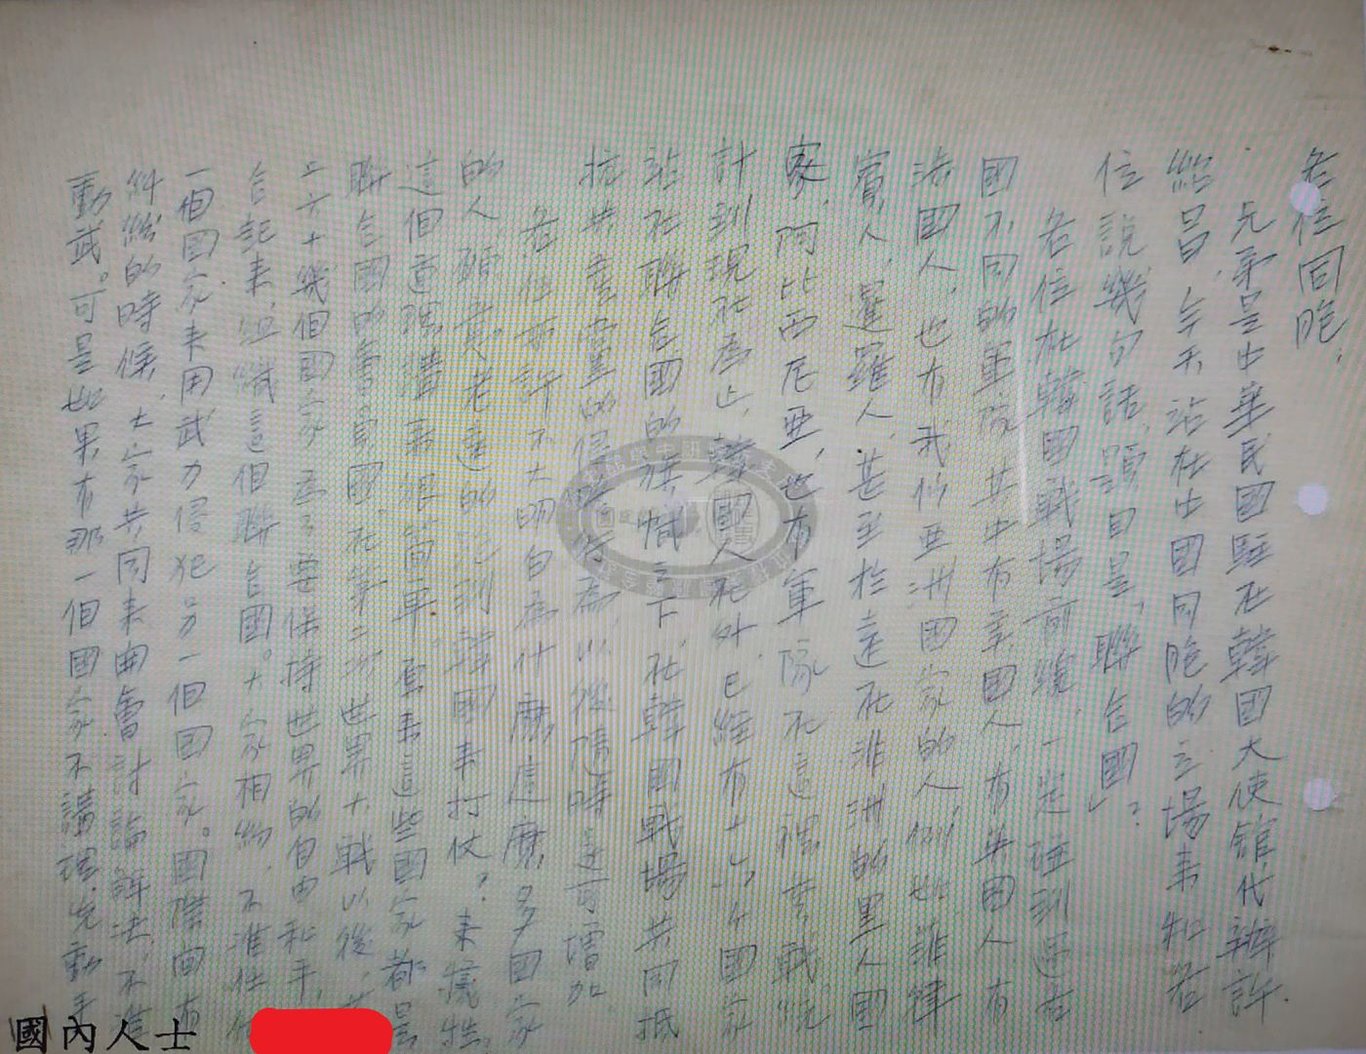 各位同胞：
兄弟是中華民國駐在韓國大使館代辦許
紹昌，今天站在中國同胞的立場來和各
位說幾句話，題目是「聯合國」？
各位在韓國戰場前綫，一定碰到過各
國不同的軍隊，其中有美國人，有英國人，有
法國人，也有我們亞洲國家的人，例如菲律
賓人，暹羅人，甚至於遠在非洲的黑人國
家，阿比西尼亞，也有軍隊在這裡作戰。統
計到現在為止，韓國人在外，已經有十六個國家
站在聯合國的旗幟之下，在韓國戰場共同抵
抗共產黨的侵略行為，以後隨時還可增加
各位或許不大明白為什麼這麼多國家
的人，願意老遠的跑到韓國來打仗？來犧牲，
這個道理講來很簡單。原來這些國家都是
聯合國的會員國，在第二次世界大戰以後，
六十幾個國家為了要保持世界的自由和平，
合起來，組織這個聯合國。大家相約，不准任何
一個國家來用武力侵犯另一個國家。國際間有
糾紛的時候，大家共同來開會討論解決，不准
動武。可是如果有那一個國家不講理，先動手
國內人士